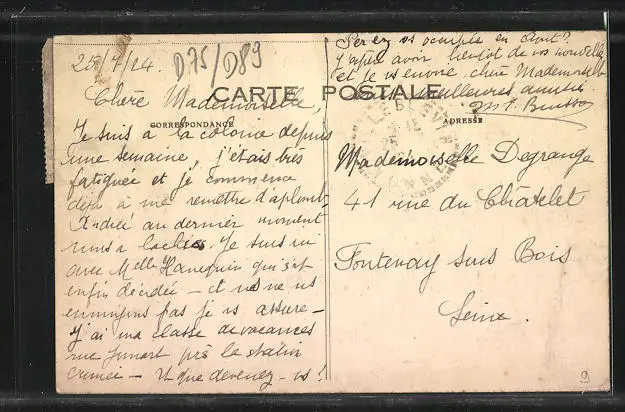 25/7/24 D75/D89
CARTE POSTALE
CORRESPONDANCE
ADRESSE
Chère Mademoiselle,
Je suis a la colonie depuis
une semaine, j'étais très
fatiguée et je commence
déjà a me remettre d'aplomb.
Andrée au dernier moment
nous a lachés. Je suis ici
avec Melle Hanequin qui s'est
enfin décidée — et ns ne ns
ennuyons pas je vs assure —
J'ai ma classe de vacances
rue Jomart près la station
Crimée — Et que devenez-vs ?
Serez vs occupée en Août ?
J'espère avoir bientôt de vos nouvelles
et je vs envoie, chère Mademoiselle
meilleures amitiés.
Mademoiselle Degrange
41 rue du Châtelet
Fontenay sous Bois
Seine.
9